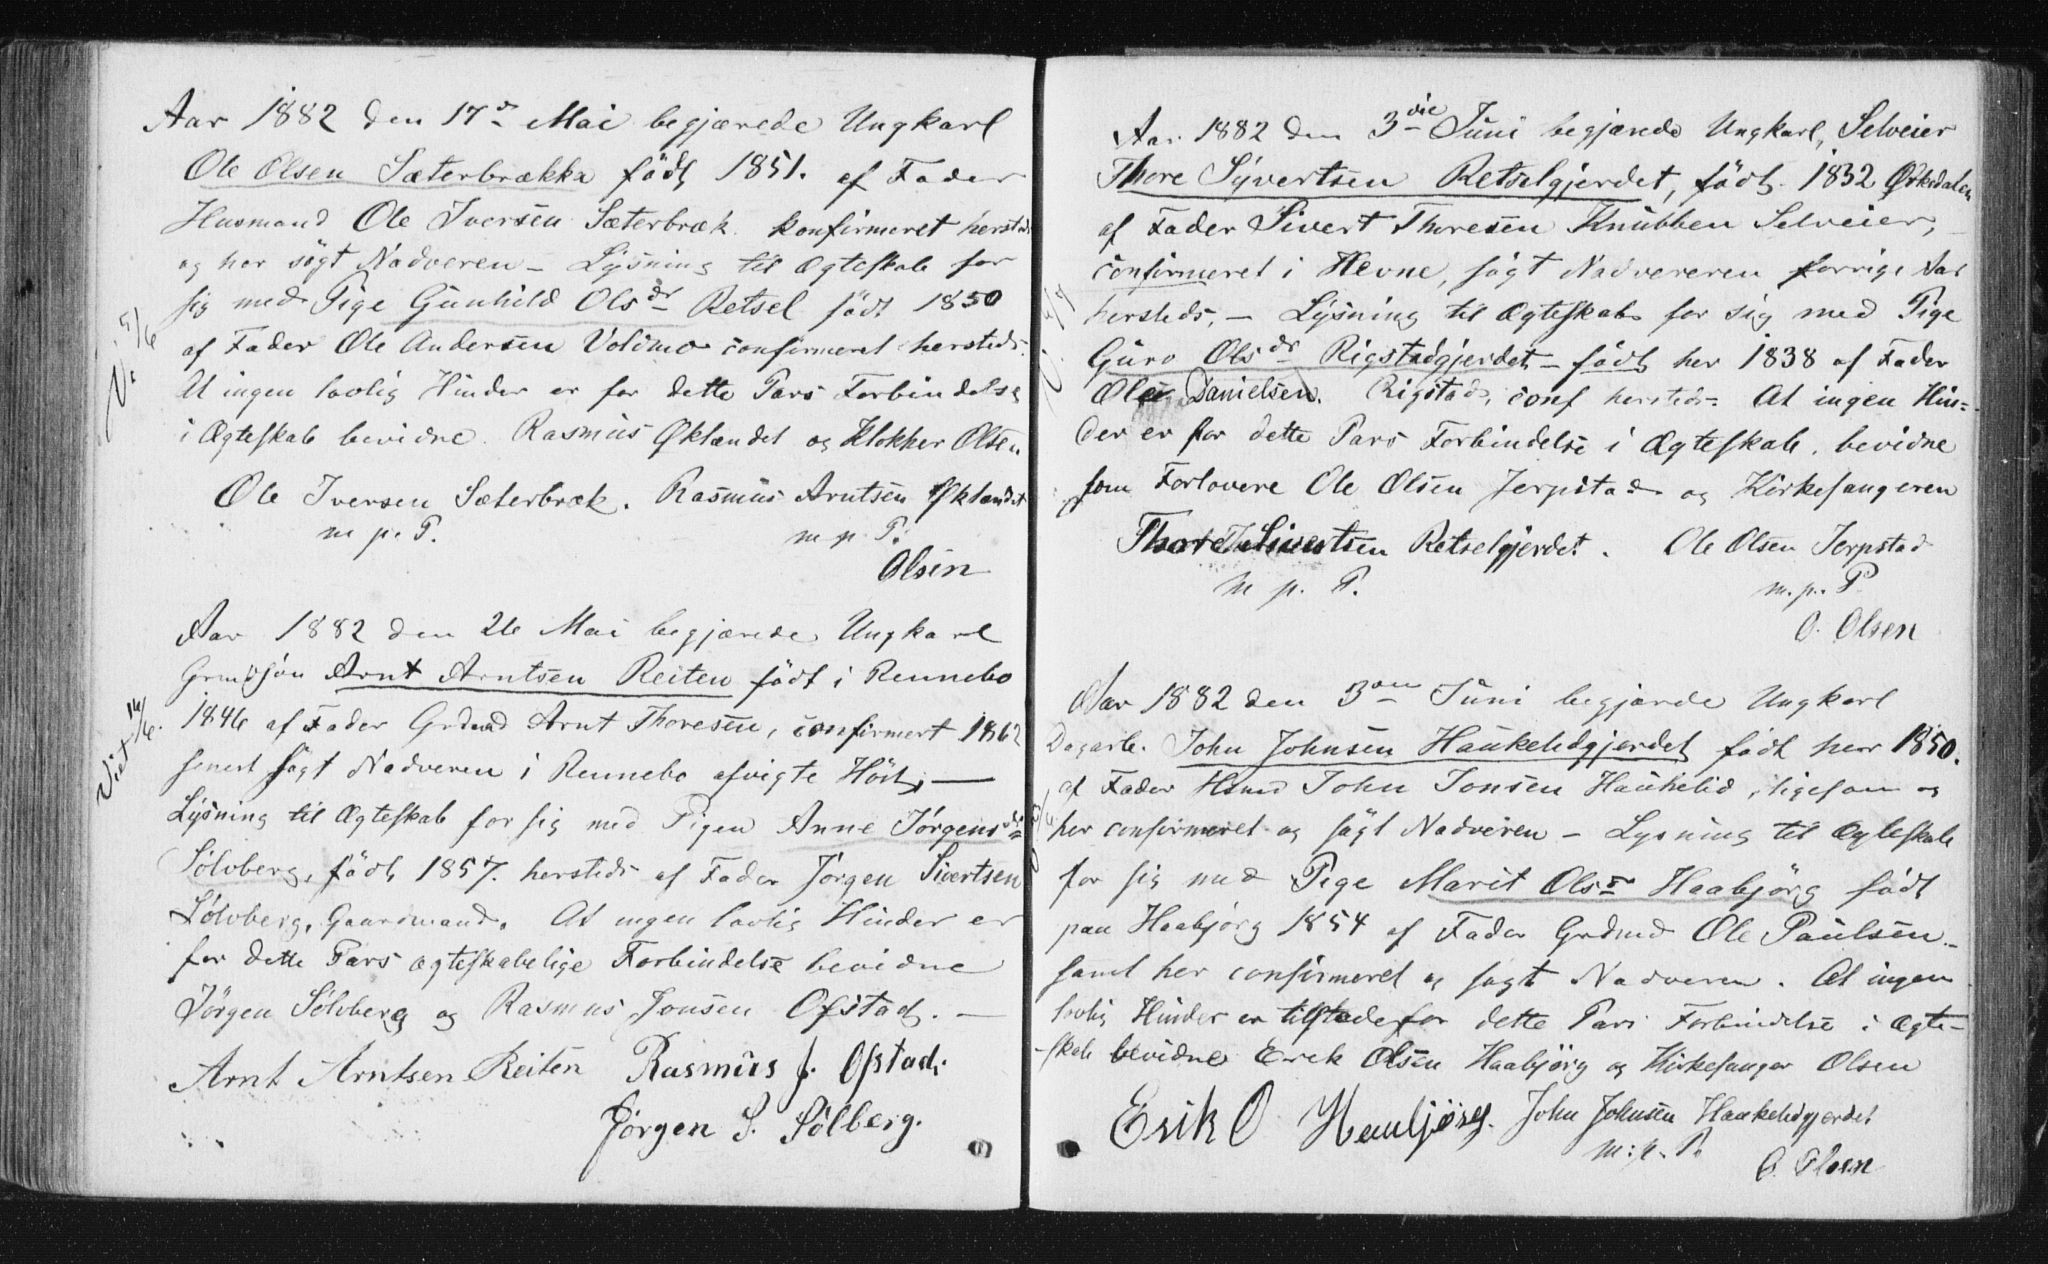 Aar 1882 den 17de Mai begjærede Ungkarl
Ole Olsen Sæterbrækka født 1851. af Fader
Husmand Ole Iversen Sæterbræk. konfirmeret hersteds
og har søgt Nadveren – Lysning til Ægteskab for
sig med Pige Gunhild Olsdr Retsel født 1850
af Fader Ole Andersen Voldmo confirmeret hersteds.
At ingen lovlig Hinder er for dette Pars Forbindelse
i Ægteskab bevidne Rasmus Øklandet og Klokker Olsen
V. 5/6
Ole Iversen Sæterbræk. Rasmus Arntsen Øklandet
m. p. P. m. p. P.
Olsen
Aar 1882 den 26 Mai begjærede Ungkarl
Grmdsøn Arnt Arntsen Reiten født i Rennebo
1846 af Fader Grdmd Arnt Thoresen, confirmert 1862
senest søgt Nadveren i Rennebo afvigte Høst, —
Lysning til Ægteskab for sig med Pigen Anne Jørgensdr
Sølvberg, født 1857. hersteds af Fader Jørgen Sivertsen
Sølvberg, Gaardmand. At ingen lovlig Hinder er
for dette Pars ægteskabelige Forbindelse bevidne
Jörgen Sölvberg og Rasmus Jonsen Ofstad. —
Viet 16/6.
Arnt Arntsen Reiten Rasmus J. Ofstad.
Jørgen S. Sölberg.
Aar 1882 den 3die Juni begjærede Ungkarl, Selveier
Thore Syvertsen Retselgjerdet, født 1832 Ørkedalen
af Fader Sivert Thoresen Knubben Selveier,
confirmeret i Hevne, søgt Nadvereren forrige Aar
hersteds, – Lysning til Ægteskab for sig med Pige
Guro Olsdr Rigstadgjerdet – født her 1838 af Fader
Ole Danielsen Rigstad, conf hersteds. At ingen Hin=
der er for dette Pars Forbindelse i Ægteskab, bevidne
som Forlovere Ole Olsen Jerpstad og Kirkesangeren
Thore Sivertsen Retselgjerdet. Ole Olsen Jerpstad
m. p. P. m. p. P.
O. Olsen
Aar 1882 den 3die Juni begjærde Ungkarl
Dagarb. John Johnsen Haukelidgjerdet født her 1850.
af Fader Hsmd John Jonsen Haukelid, ligesom og
her confirmeret og søgt Nadveren – Lysning til Ægteskab
for sig med Pige Marit Olsdr Haabjörg født
paa Haabjörg 1854 af Fader Grdmd Ole Paulsen –
samt her confirmeret og søgt Nadveren. At ingen
lovlig Hinder er tilstede for dette Pars Forbindelse i Ægte-
-skab bevidne Erek Olsen Haabjörg og Kirkesanger Olsen
Erik O Haubjörg. John Johnsen Haukelidgjerdet
m. p. P.
O. Olsen